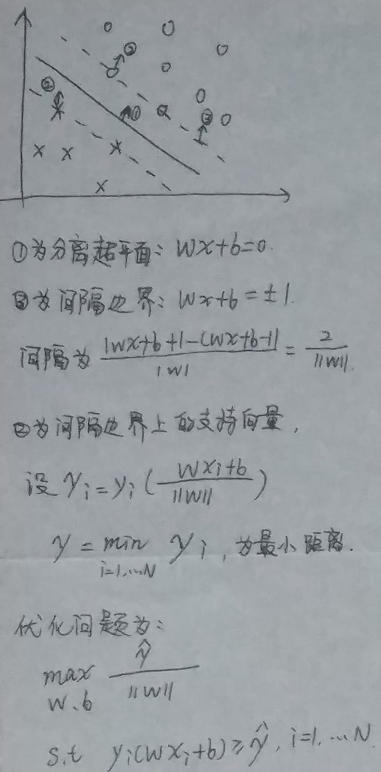 ② ② ① ③
①为分离超平面: wx+b=0.
③为间隔边界: wx+b=±1.
间隔为 |wx+b+1-(wx+b-1)| / |w| = 2 / ||w||.
②为间隔边界上的支持向量,
设 γi = yi ( wxi+b / ||w|| )
γ = min i=1,...N γi, 为最小距离.
优化问题为:
max w、b γ̂ / ||w||
s.t yi(wxi+b) ≥ γ̂, i=1,...N